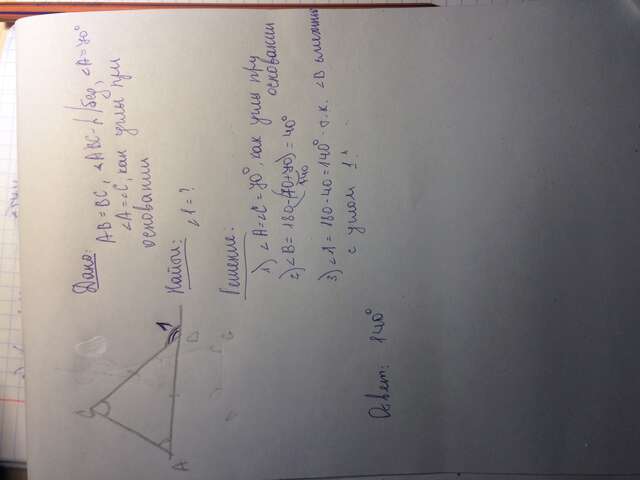 C
A
B
1
Дано:
AB = BC, ∠ABC - р/бед, ∠A = 70°
∠A = ∠C, как углы при
основании
Найти:
∠1 = ?
Решение:
1) ∠A = ∠C = 70°, как углы при
основании
2) ∠B = 180 - (70 + 70) = 40°
140
3) ∠1 = 180 - 40 = 140° т.к. ∠B смежный
с углом 1.
Ответ: 140°